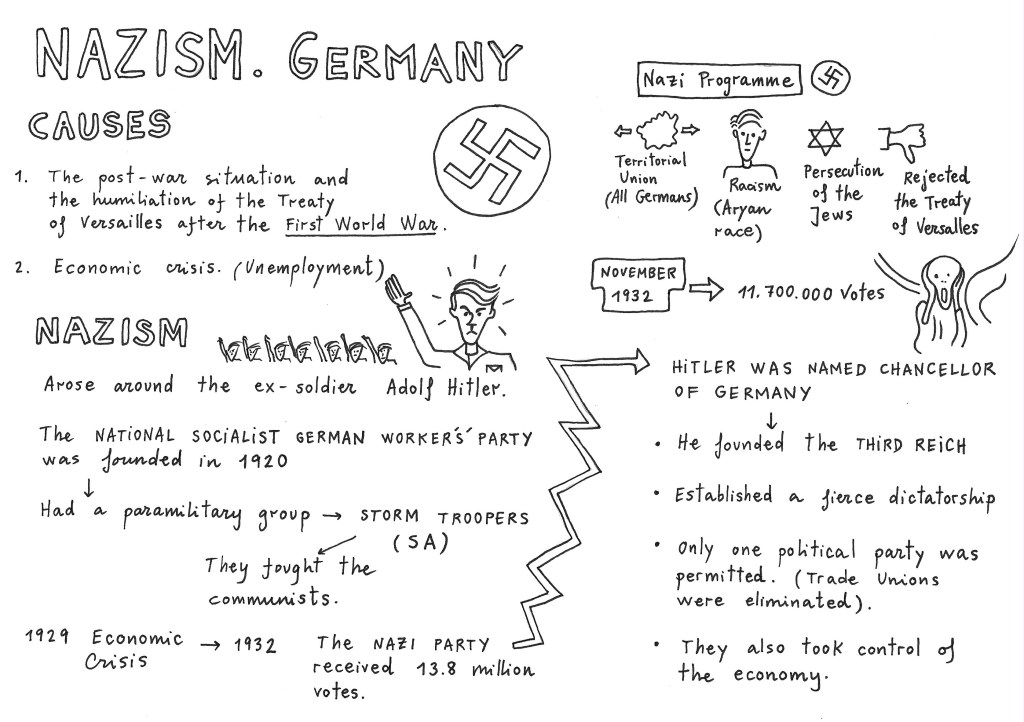 NAZISM. GERMANY
CAUSES
1. The post-war situation and
the humiliation of the Treaty
of Versailles after the First World War.
2. Economic crisis. (Unemployment)
NAZISM
Arose around the ex-soldier Adolf Hitler.
The NATIONAL SOCIALIST GERMAN WORKER'S' PARTY
was founded in 1920
↓
Had a paramilitary group → STORM TROOPERS
(SA)
They fought the
communists.
1929 Economic
Crisis
→ 1932
The NAZI PARTY
received 13.8 million
votes.
Nazi Programme
Territorial
Union
(All Germans)
Racism
(Aryan
race)
Persecution
of the
Jews
Rejected
the Treaty
of Versalles
NOVEMBER
1932
11.700.000 Votes
HITLER WAS NAMED CHANCELLOR
OF GERMANY
↓
• He founded the THIRD REICH
• Established a fierce dictatorship
• Only one political party was
permitted. (Trade Unions
were eliminated).
• They also took control of
the economy.